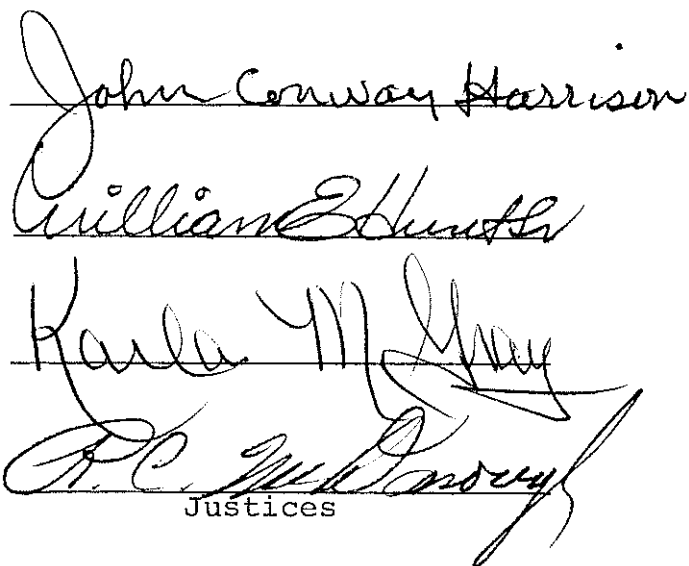 John Conway Harrison
William E Hunt Sr
Karla M Gray
R. C. McDonough
Justices